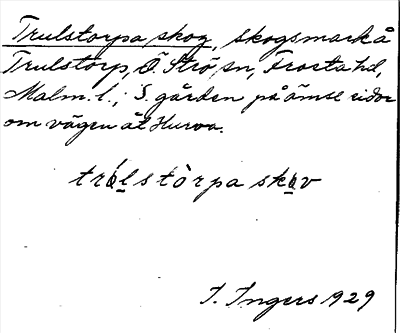 Trulstorpa skog, skogsmark å
Trulstorp, Ö. Strö sn, Frosta hd,
Malm. l.; S. gården på ömse sidor
om vägen åt Hurva.
trólstòrpa skov
I. Ingers 1929